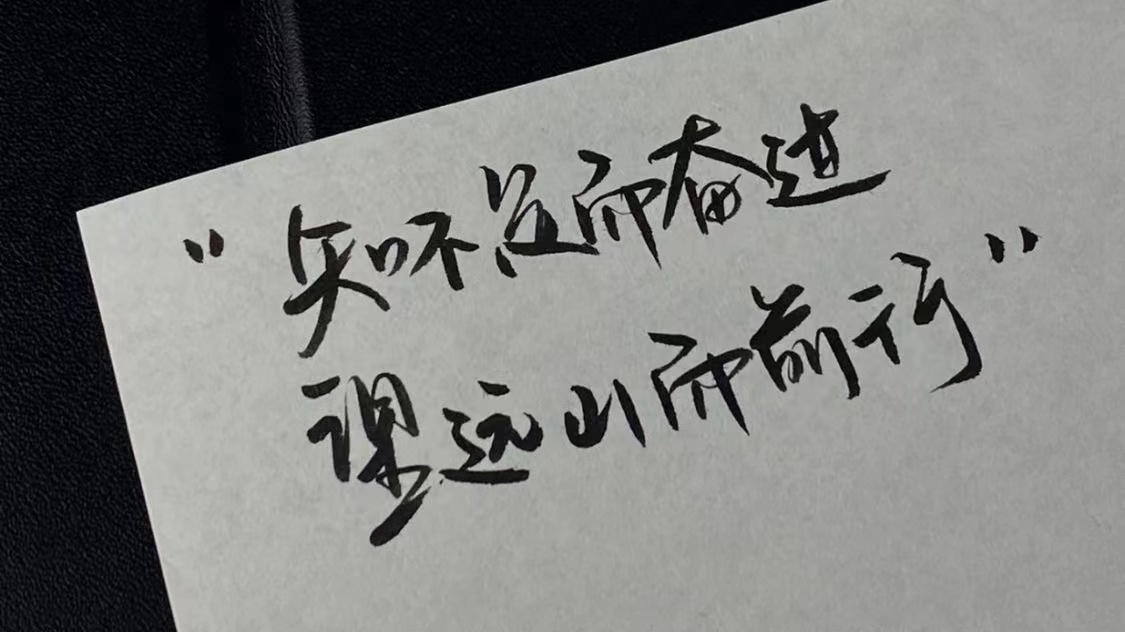 "知不足而奋进
望远山而前行"